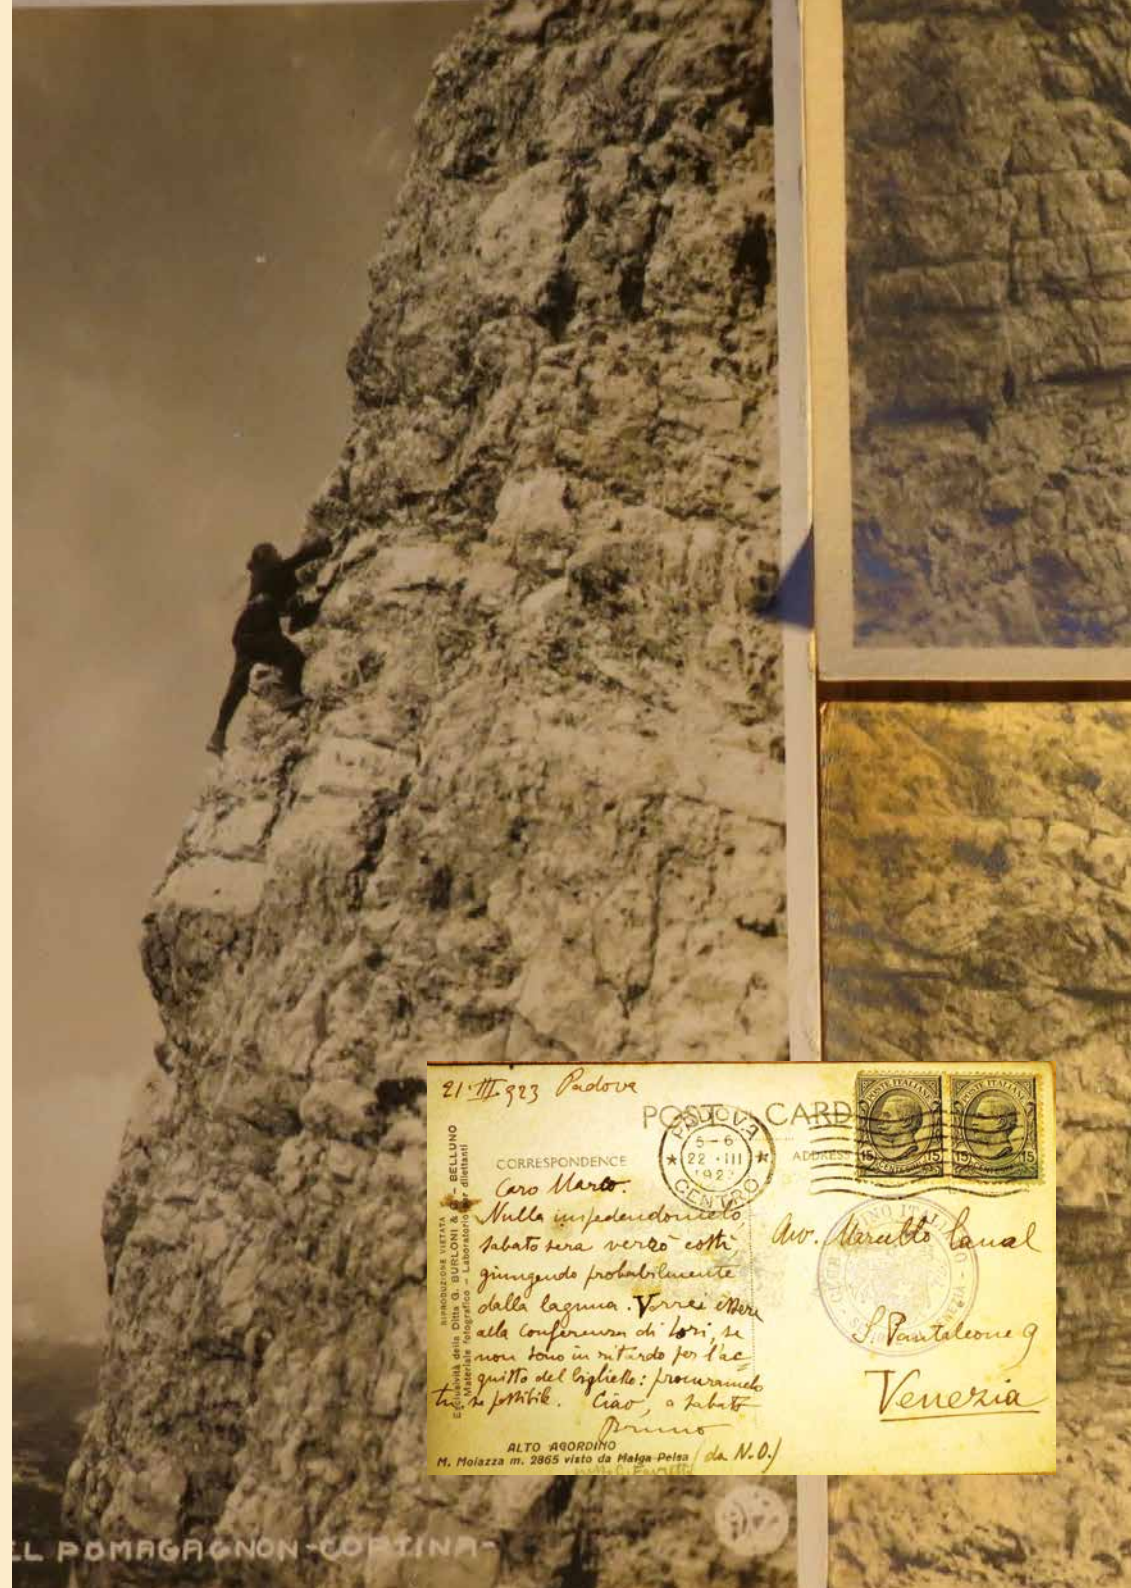 21·III·923 Padova
POST CARD
PADOVA
5-6
22·III
192
CENTRO
POSTE ITALIANE
15 15
CENTESIMI
POSTE ITALIANE
15 15
CORRESPONDENCE
ADDRESS
RIPRODUZIONE VIETATA
Esclusività della Ditta G. BURLONI & C. - BELLUNO
Materiale fotografico - Laboratorio per dilettanti
Caro Marco.
Nulla impedendomelo,
sabato sera verrò costì,
giungendo probabilmente
dalla laguna. Vorrei essere
alla conferenza di Lori, se
non sono in ritardo per l'ac=
quisto del biglietto: procuramelo
tu, se possibile. Ciao, a sabato
Bruno
Avv. Marcello Canal
CLUB ALPINO ITALIANO
VENEZIA
S. Pantaleone 9
Venezia
ALTO AGORDINO
M. Moiazza m. 2865 visto da Malga Pelsa (da N.O.)
EL POMAGAGNON-CORTINA-